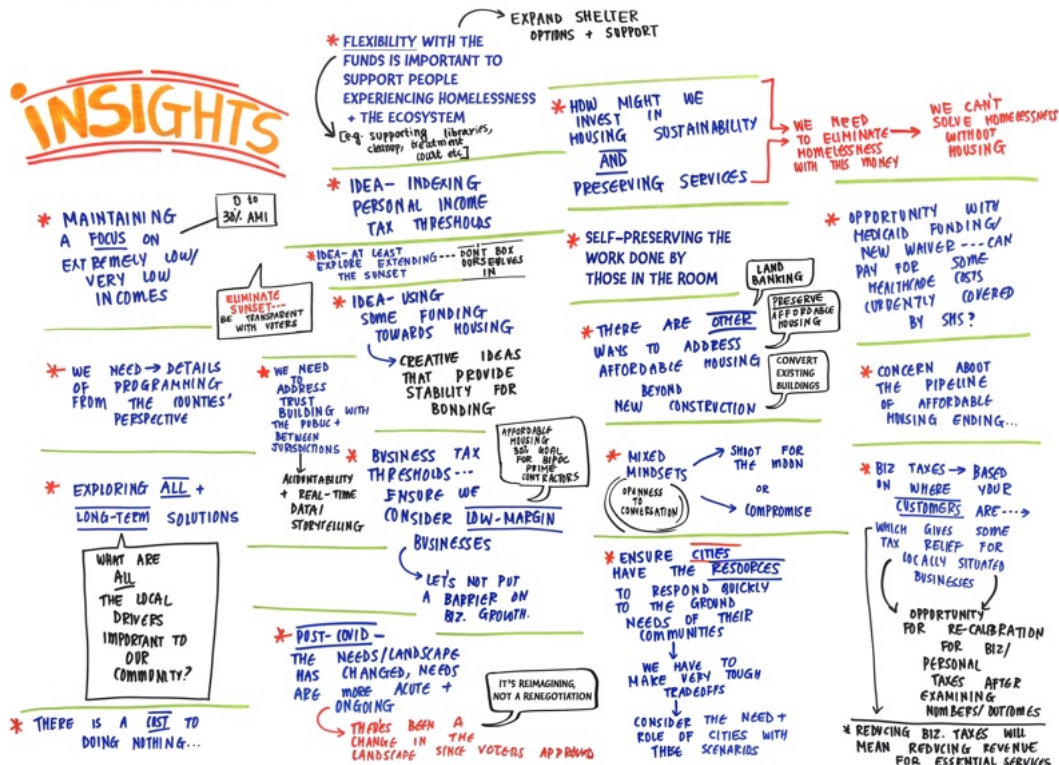 INSIGHTS
* MAINTAINING
A FOCUS ON
EXTREMELY LOW/
VERY LOW
INCOMES
0 to
30% AMI
ELIMINATE
SUNSET...
BE TRANSPARENT
WITH VOTERS
* WE NEED → DETAILS
OF PROGRAMMING
FROM THE COUNTIES'
PERSPECTIVE
* EXPLORING ALL +
LONG-TERM SOLUTIONS
WHAT ARE
ALL
THE LOCAL
DRIVERS
IMPORTANT TO
OUR
COMMUNITY?
* THERE IS A COST TO
DOING NOTHING...
* FLEXIBILITY WITH THE
FUNDS IS IMPORTANT TO
SUPPORT PEOPLE
EXPERIENCING HOMELESSNESS
+ THE ECOSYSTEM
[e.g. supporting libraries,
cleanup, treatment
court etc]
EXPAND SHELTER
OPTIONS + SUPPORT
* IDEA- INDEXING
PERSONAL INCOME
TAX THRESHOLDS
* IDEA- AT LEAST
EXPLORE EXTENDING---
THE SUNSET
DON'T BOX
OURSELVES
IN
* IDEA- USING
SOME FUNDING
TOWARDS HOUSING
CREATIVE IDEAS
THAT PROVIDE
STABILITY FOR
BONDING
* WE NEED
TO
ADDRESS
TRUST
BUILDING WITH
THE PUBLIC +
BETWEEN
JURISDICTIONS
ACCOUNTABILITY
+ REAL-TIME
DATA/
STORYTELLING
* BUSINESS TAX
THRESHOLDS---
ENSURE WE
CONSIDER LOW-MARGIN
BUSINESSES
AFFORDABLE
HOUSING
30% GOAL
FOR BIPOC
PRIME
CONTRACTORS
LET'S NOT PUT
A BARRIER ON
BIZ. GROWTH.
* POST-COVID-
THE NEEDS/LANDSCAPE
HAS CHANGED, NEEDS
ARE MORE ACUTE +
ONGOING
THERE'S BEEN A
CHANGE IN THE
LANDSCAPE SINCE VOTERS APPROVED
IT'S REIMAGINING,
NOT A RENEGOTIATION
* HOW MIGHT WE
INVEST IN
HOUSING SUSTAINABILITY
AND
PRESERVING SERVICES
WE NEED
TO ELIMINATE
HOMELESSNESS
WITH THIS MONEY
WE CAN'T
SOLVE HOMELESSNESS
WITHOUT
HOUSING
* SELF-PRESERVING THE
WORK DONE BY
THOSE IN THE ROOM
* THERE ARE OTHER
WAYS TO ADDRESS
AFFORDABLE HOUSING
BEYOND
NEW CONSTRUCTION
LAND
BANKING
PRESERVE
AFFORDABLE
HOUSING
CONVERT
EXISTING
BUILDINGS
* MIXED
MINDSETS
OPENNESS
TO
CONVERSATION
SHOOT FOR
THE MOON
OR
COMPROMISE
* ENSURE CITIES
HAVE THE RESOURCES
TO RESPOND QUICKLY
TO THE GROUND
NEEDS OF THEIR
COMMUNITIES
WE HAVE TO
MAKE VERY TOUGH
TRADEOFFS
CONSIDER THE NEED +
ROLE OF CITIES WITH
THESE SCENARIOS
* OPPORTUNITY WITH
MEDICAID FUNDING/
NEW WAIVER --- CAN
PAY FOR SOME
HEALTHCARE COSTS
CURRENTLY COVERED
BY SHS?
* CONCERN ABOUT
THE PIPELINE
OF AFFORDABLE
HOUSING ENDING...
* BIZ TAXES → BASED
ON WHERE YOUR
CUSTOMERS ARE ---→
WHICH GIVES SOME
TAX RELIEF FOR
LOCALLY SITUATED
BUSINESSES
OPPORTUNITY
FOR RE-CALIBRATION
FOR BIZ/
PERSONAL
TAXES AFTER
EXAMINING
NUMBERS/OUTCOMES
* REDUCING BIZ. TAXES WILL
MEAN REDUCING REVENUE
FOR ESSENTIAL SERVICES